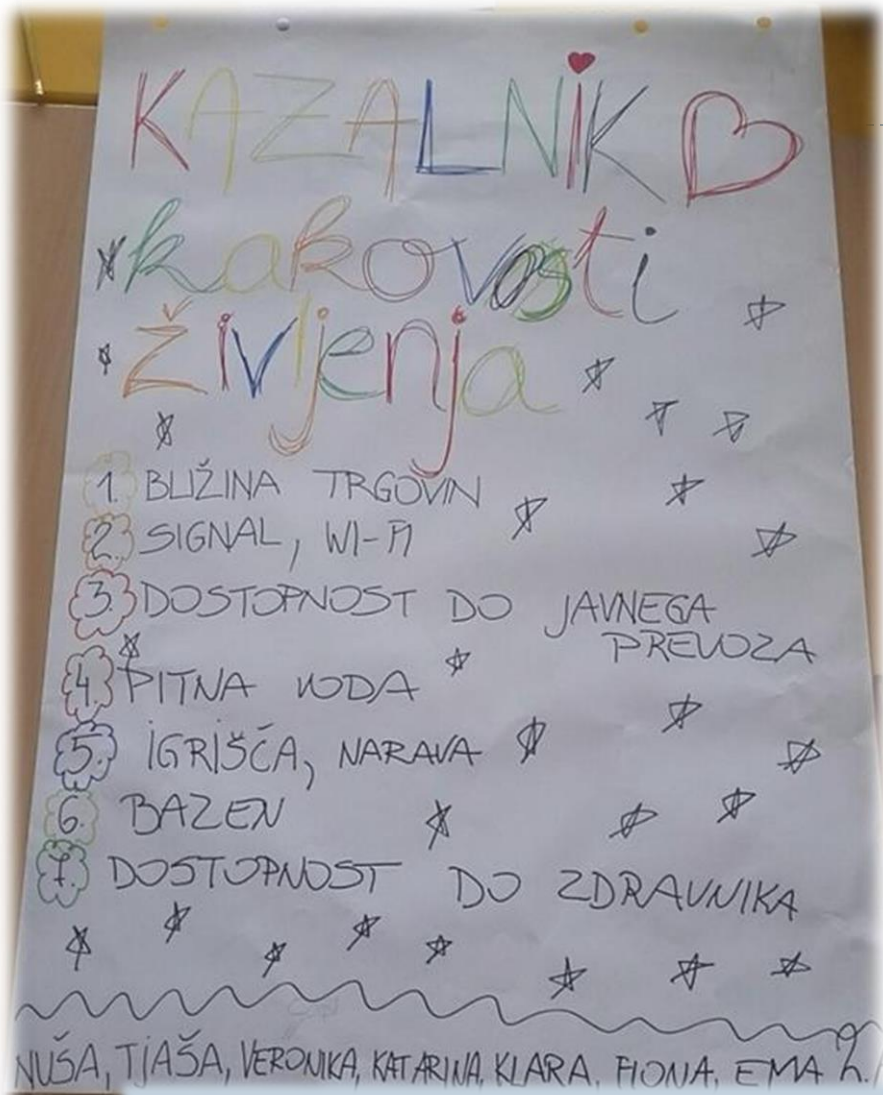 KAZALNIK
kakovosti
življenja
1. BLIŽINA TRGOVIN
2. SIGNAL, WI-FI
3. DOSTOPNOST DO JAVNEGA
PREVOZA
4. PITNA VODA
5. IGRIŠČA, NARAVA
6. BAZEN
7. DOSTOPNOST DO ZDRAVNIKA
NUŠA, TJAŠA, VERONIKA, KATARINA, KLARA, FIONA, EMA